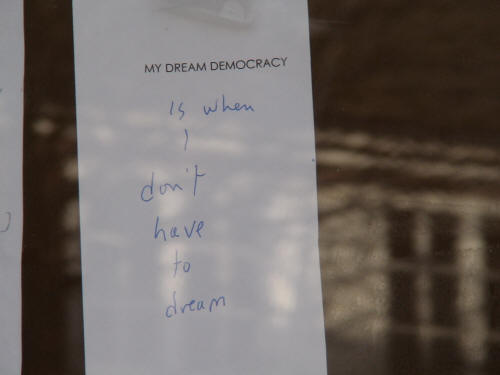 MY DREAM DEMOCRACY
is when
I
don't
have
to
dream